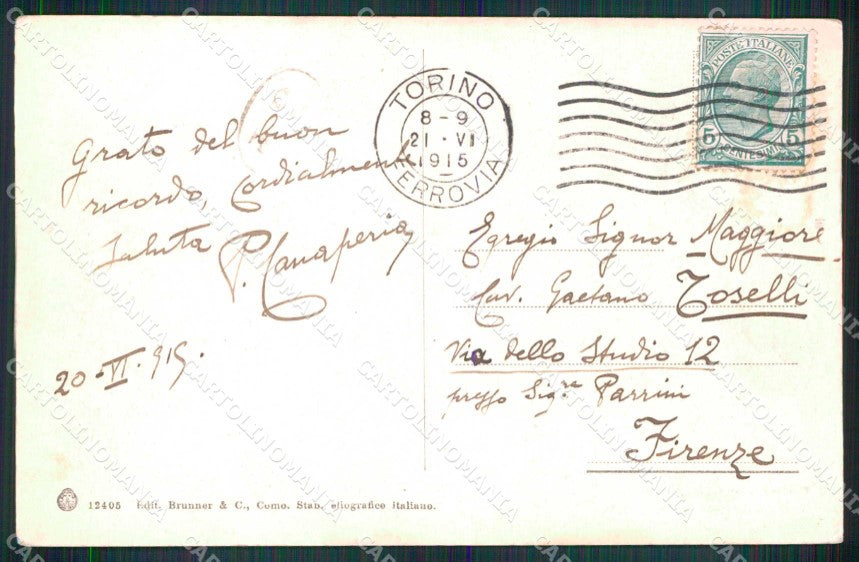 TORINO
8-9
21·VI
1915
FERROVIA
POSTE ITALIANE
5 CENTESIMI 5
Grato del buon
ricordo, cordialmente
saluta P. Canaperia
20·VI·915·
Egregio Signor Maggiore
Cav. Gaetano Toselli
Via dello Studio 12
presso Sigra Parrini
Firenze
12405 Edit. Brunner & C., Como. Stab. eliografico italiano.
CARTOLINOMANIA